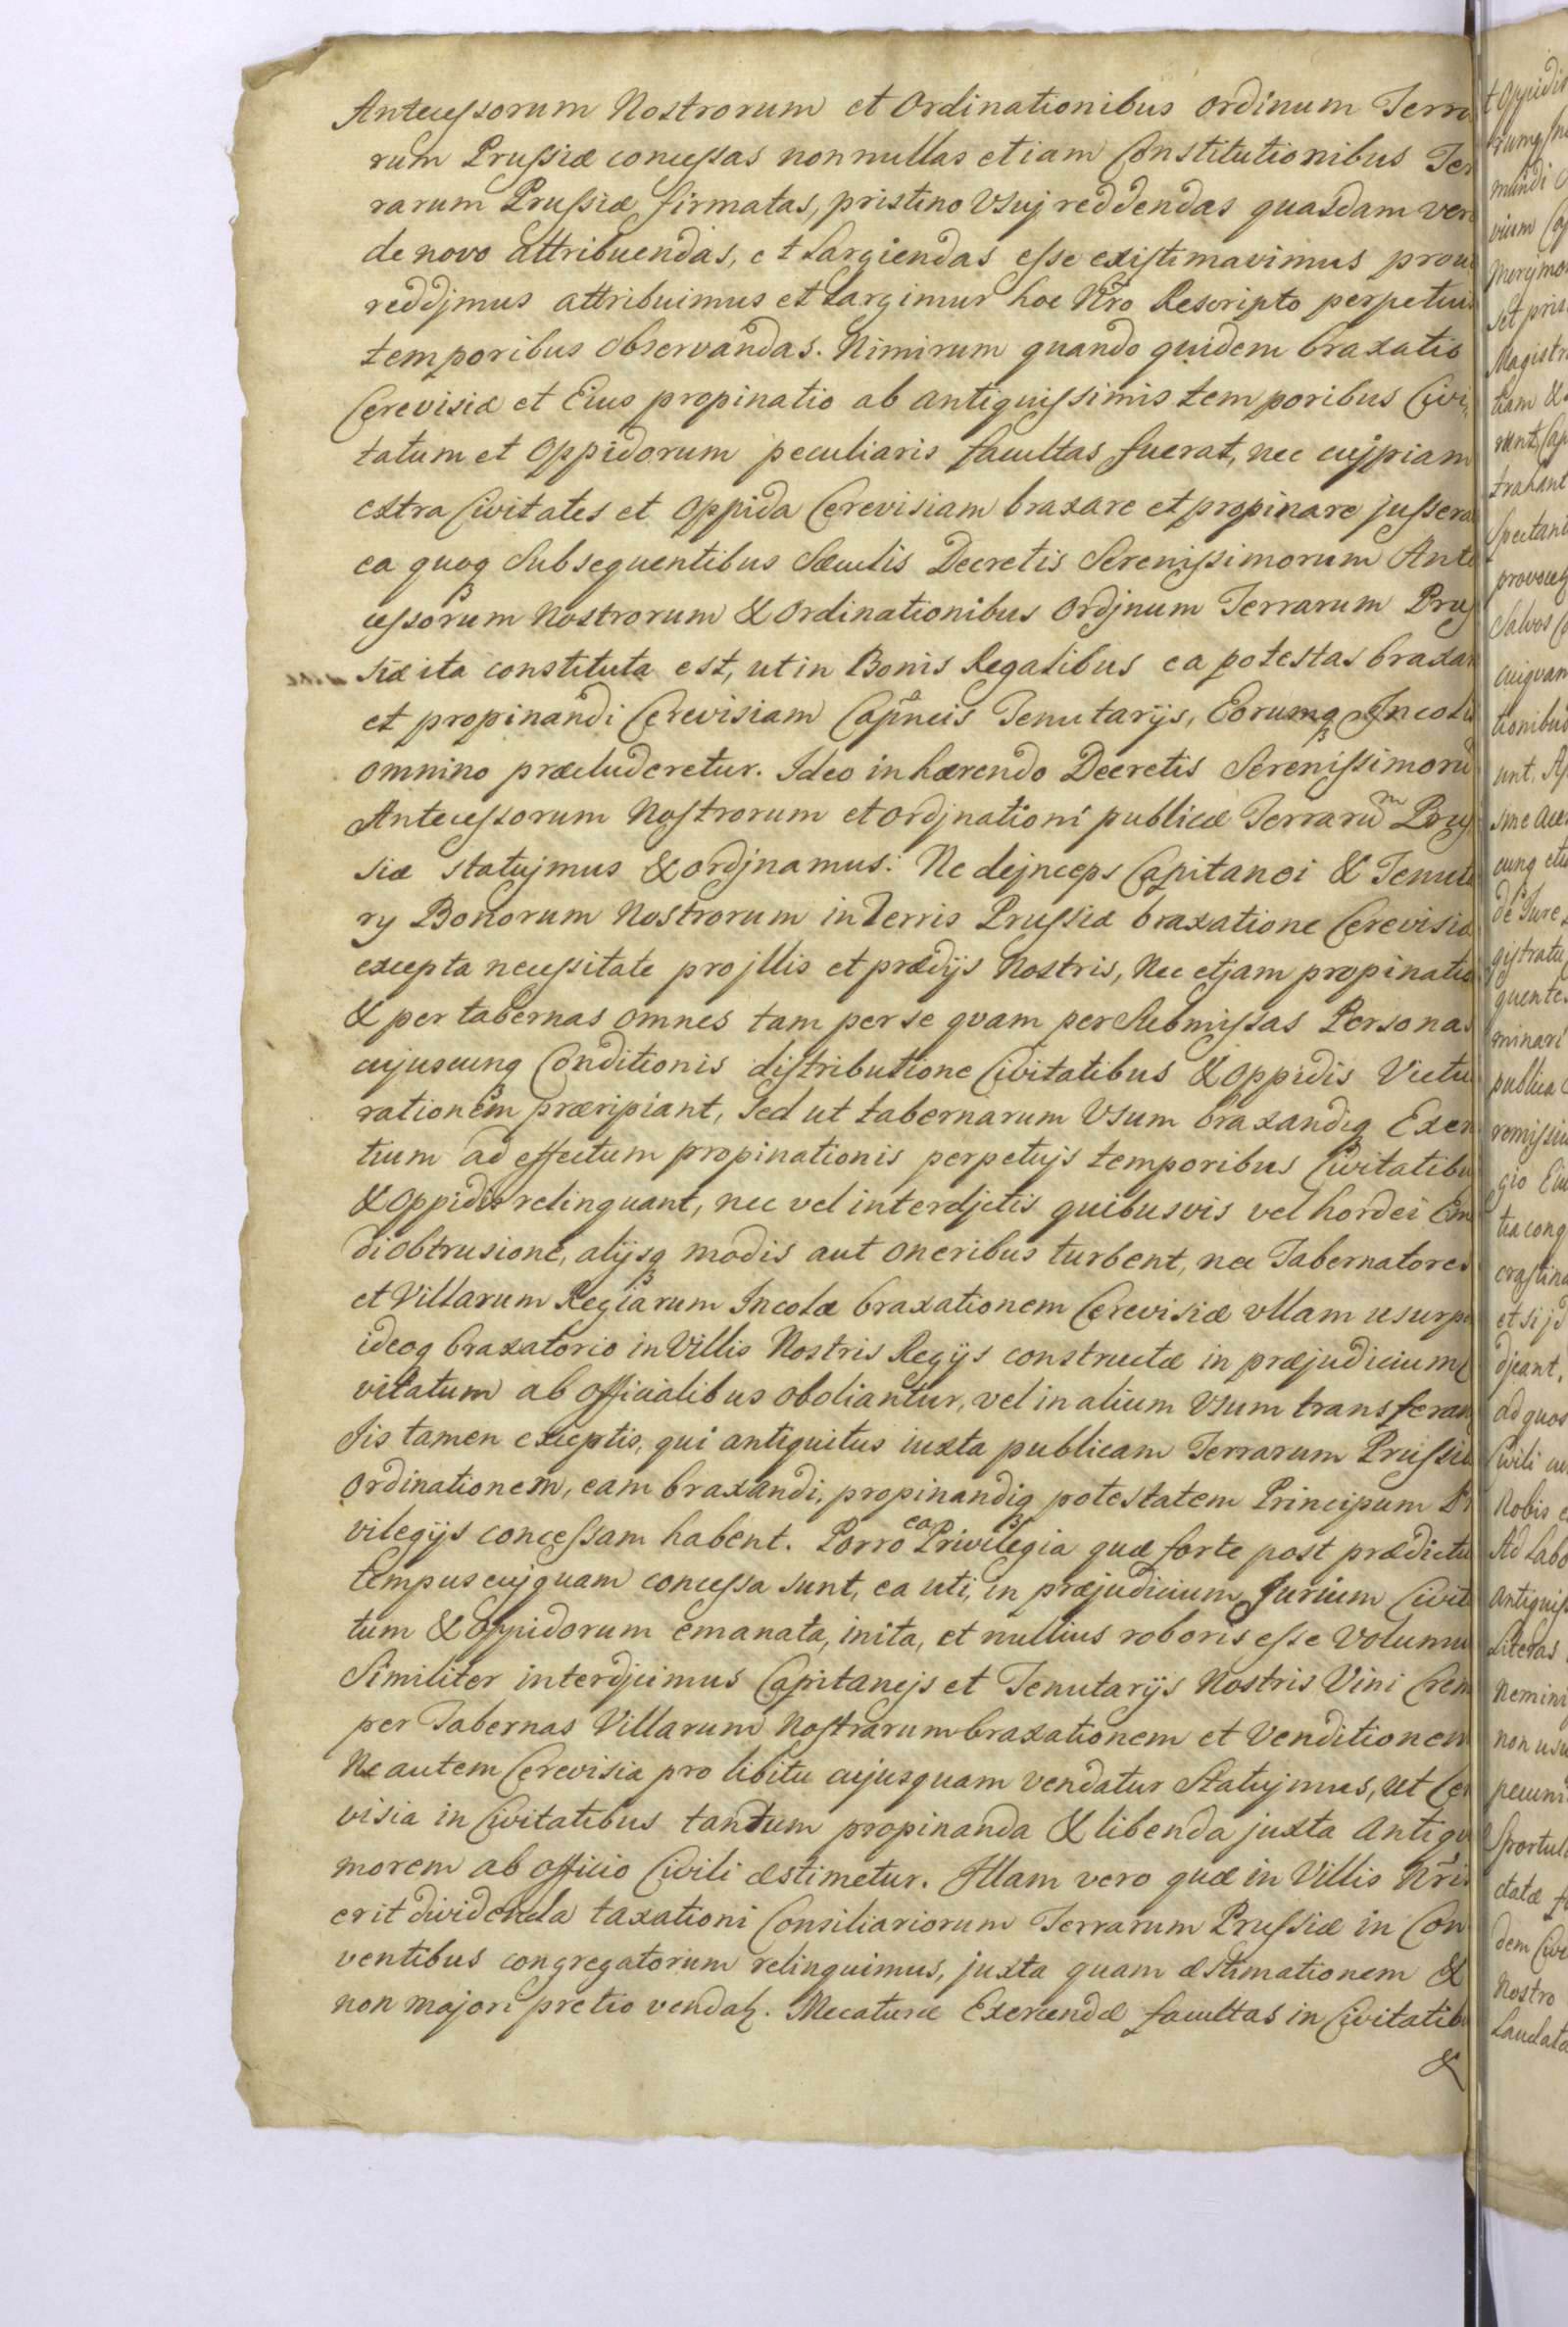 Antecessorum Nostrorum et Ordinationibus Ordinum Terra
rum Prussiæ concessas nonnullas etiam Constitutionibus Ter
rarum Prussiæ firmatas, pristino Vsuj reddendas quasdam vero
de novo attribuendas, et Largiendas esse existimavimus prout
reddjmus attribuimus et Largimur hoc Nro Rescripto perpetuis
temporibus observandas. Nimirum quando quidem braxatio
Cerevisiæ et Eius propinatio ab antiquissimis temporibus Civi,
tatum et Oppidorum peculiaris facultas fuerat, nec cujpiam
extra Civitates et Oppida Cerevisiam braxare et propinare jussera
ea quoq Subsequentibus Sæculis Decretis Serenissimorum Ante
cessorum Nostrorum & Ordinationibus Ordjnum Terrarum Prus
siæ ita constituta est, ut in Bonis Regalibus ea potestas braxan
et propinandi Cerevisiam Capneis Tenutarijs, Eorumq Incolis
omnino præcluderetur. Ideo inhærendo Decretis Serenissimorū
Antecessorum Nostrorum et Ordjnationi publicæ Terrarum Prus
siæ statujmus & ordjnamus: Ne dejnceps Capitanei & Tenuta
rij Bonorum Nostrorum in Terris Prussiæ braxatione Cerevisiæ
excepta necessitate pro jllis et prædijs Nostris, Nec etjam propinatio
& per tabernas omnes tam per se quam per Submissas Personas
cujuscunq Conditionis distributione Civitatibus & Oppidis Victu
rationem præripiant, Sed ut tabernarum Vsum braxandiq Exer
tium ad effectum propinationis perpetujs temporibus Civitatibu
& Oppidis relinquant, nec vel interdjctis quibusvis vel hordei Em
di obtrusione, alijsq modis aut oneribus turbent, nec Tabernatores
et Villarum Regiarum Incolæ braxationem Cerevisiæ vllam usurpe
ideoq braxatorio in Villis Nostris Regijs constructæ in præjudicium C
vitatum ab officialibus aboliantur, vel in alium Vsum transferan
Jis tamen exceptis, qui antiquitus iuxta publicam Terrarum Prussiæ
Ordinationem, eam braxandi, propinandiq potestatem Principum Pr
vilegijs concessam habent. Porro ea Privilegia quæ forte post prædictu
tempus cujquam concessa sunt, ea uti, in præjudicium Jurium Civit
tum & Oppidorum emanata, inita, et nullius roboris esse Volumu
Similiter interdjcimus Capitanejs et Tenutarijs Nostris Vini Crem
per Tabernas Villarum Nostrarum braxationem et Venditionem
Ne autem Cerevisia pro libitu cujusquam vendatur Statujmus, ut Cer
visia in Civitatibus tantum propinanda & libenda juxta Antiqu
morem ab officio Civili æstimetur. Illam vero quæ in Villis Nris
erit dividenda taxationi Consiliariorum Terrarum Prussiæ in Con
ventibus congregatorum relinquimus, juxta quam æstimationem &
non majori pretio vendatz. Mecaturæ Exercendæ facultas in Civitatib
&